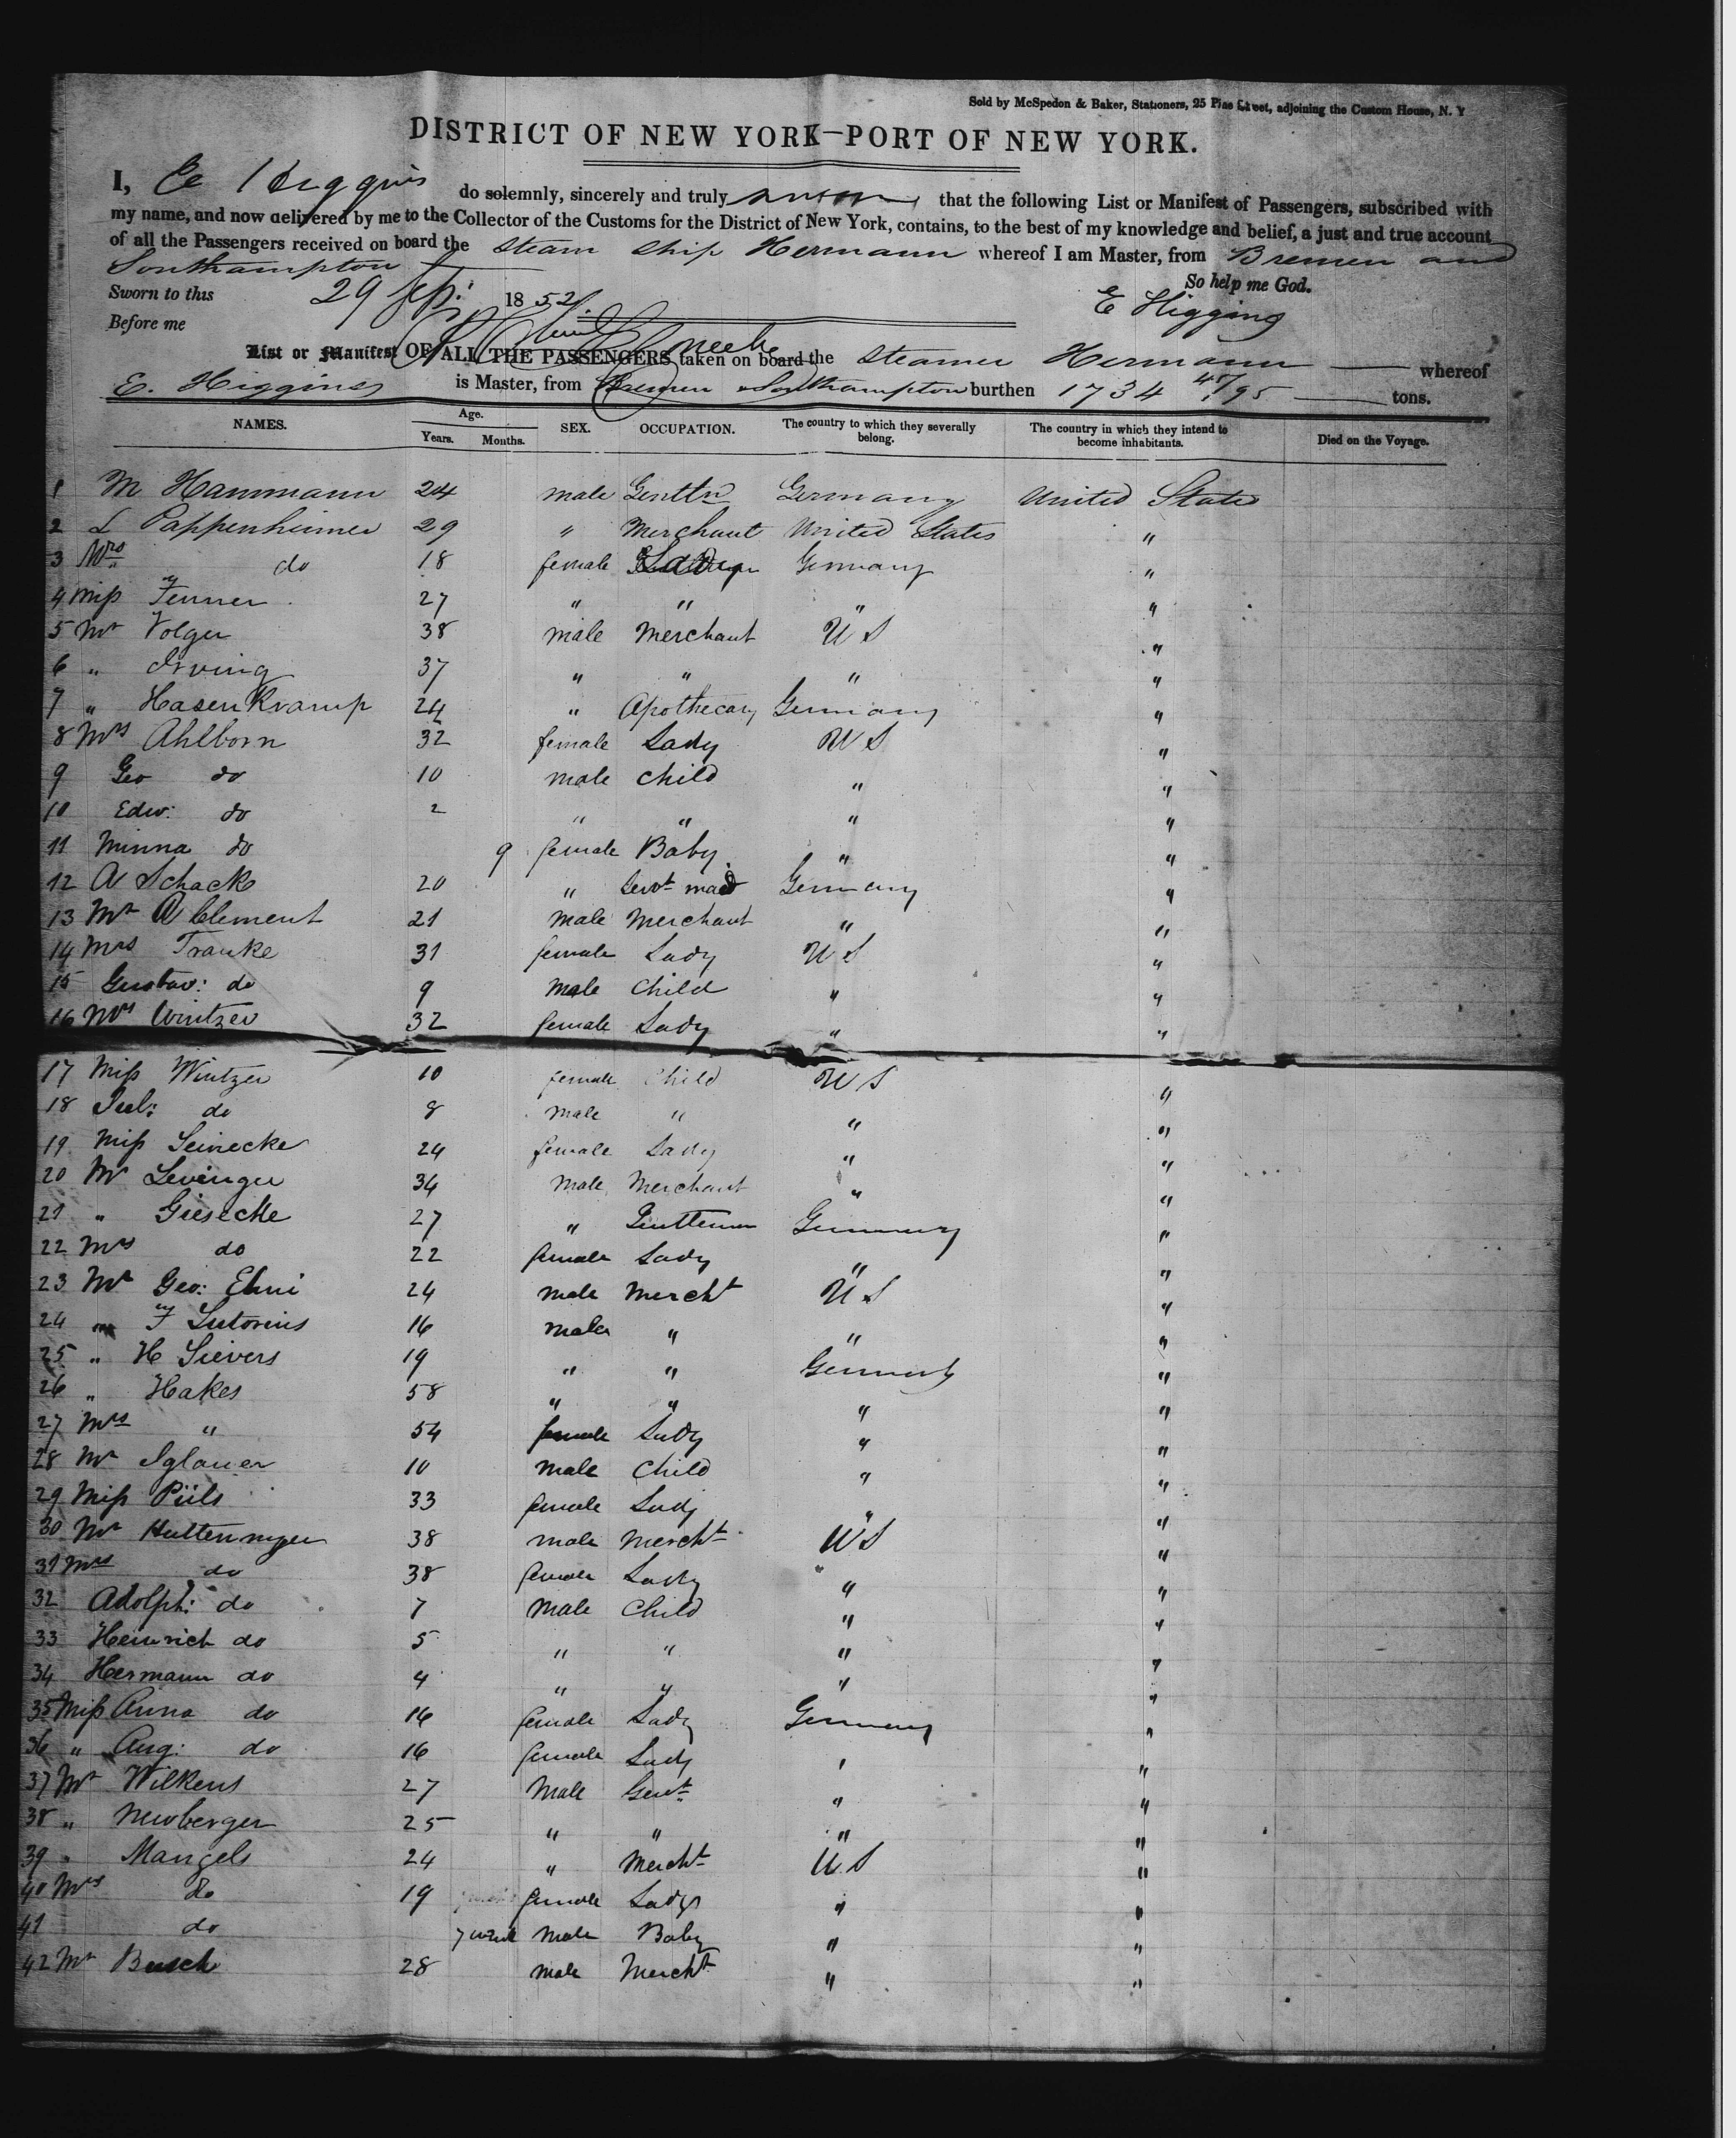 Sold by McSpedon & Baker, Stationers, 25 Pine Street, adjoining the Custom House, N. Y
DISTRICT OF NEW YORK—PORT OF NEW YORK.
I, E Higgins do solemnly, sincerely and truly swear that the following List or Manifest of Passengers, subscribed with
my name, and now delivered by me to the Collector of the Customs for the District of New York, contains, to the best of my knowledge and belief, a just and true account
of all the Passengers received on board the Steam Ship Hermann whereof I am Master, from Bremen and
Southampton
So help me God.
Sworn to this 29 Sep: 1852
E Higgins
Before me
List or Manifest OF ALL THE PASSENGERS taken on board the Steamer Hermann whereof
E. Higgins is Master, from Bremen & Southampton burthen 1734 47/95 tons.
NAMES. Age. Years. Months. SEX. OCCUPATION. The country to which they severally belong. The country in which they intend to become inhabitants. Died on the Voyage.
1 M Hammann 24 male Gentln Germany United States
2 L Pappenheimer 29 " Merchant United States "
3 Mrs do 18 female Lady Germany "
4 Miss Fenner 27 " " " "
5 Mr Volger 38 male Merchant U S "
6 " Irving 37 " " " "
7 " Hasenkramp 24 " Apothecary Germany "
8 Mrs Ahlborn 32 female Lady U S "
9 Geo do 10 male Child " "
10 Edw: do 2 " " " "
11 Minna do 9 female Baby " "
12 A Schack 20 " Servt maid Germany "
13 Mr A Clement 21 male Merchant " "
14 Mrs Tranke 31 female Lady U S "
15 Gustav: do 9 male Child " "
16 Mrs Wintzer 32 female Lady " "
17 Miss Wintzer 10 female Child U S "
18 Jul: do 8 male " " "
19 Miss Seinecke 24 female Lady " "
20 Mr Levinger 34 male Merchant " "
21 " Giesecke 27 " Gentleman Germany "
22 Mrs do 22 female Lady " "
23 Mr Geo: Ehni 24 male Mercht U S "
24 " F Sutorius 16 male " " "
25 " H Sievers 19 " " Germany "
26 " Hakes 58 " " " "
27 Mrs " 54 female Lady " "
28 Mr Iglauer 10 male Child " "
29 Miss Piils 33 female Lady " "
30 Mr Huttenmyer 38 male Mercht U S "
31 Mrs do 38 female Lady " "
32 Adolph: do 7 male Child " "
33 Heinrich do 5 " " " "
34 Hermann do 4 " " " "
35 Miss Anna do 16 female Lady Germany "
36 " Aug: do 16 female Lady " "
37 Mr Wilkens 27 Male Gent " "
38 " Newberger 25 " " " "
39 " Mangels 24 " Mercht U. S "
40 Mrs do 19 female Lady " "
41 do 7 week male Baby " "
42 Mr Busch 28 male Mercht " "